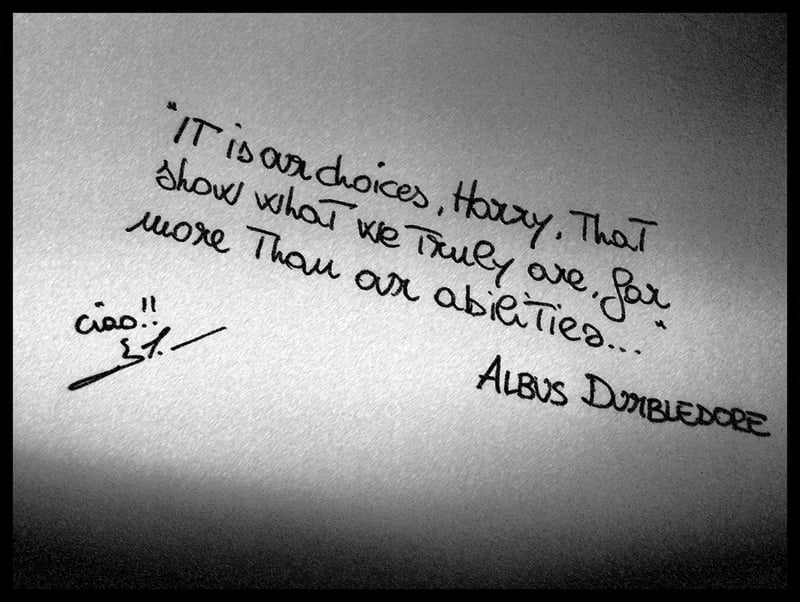 "IT is our choices, Harry, that
show what we truly are, far
more than our abilities..."
ALBUS DUMBLEDORE
ciao!!